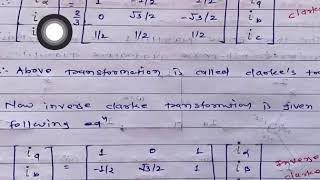 i 2/3 0 √3/2 -√3/2 i_b clarke
i 1/2 1/2 1/2 i_c
∴ Above transformation is called clarke's
Now inverse clarke transformation is given
following eqⁿ
i_a = 1 0 1 i_α inverse
i_b -1/2 √3/2 1 clarke